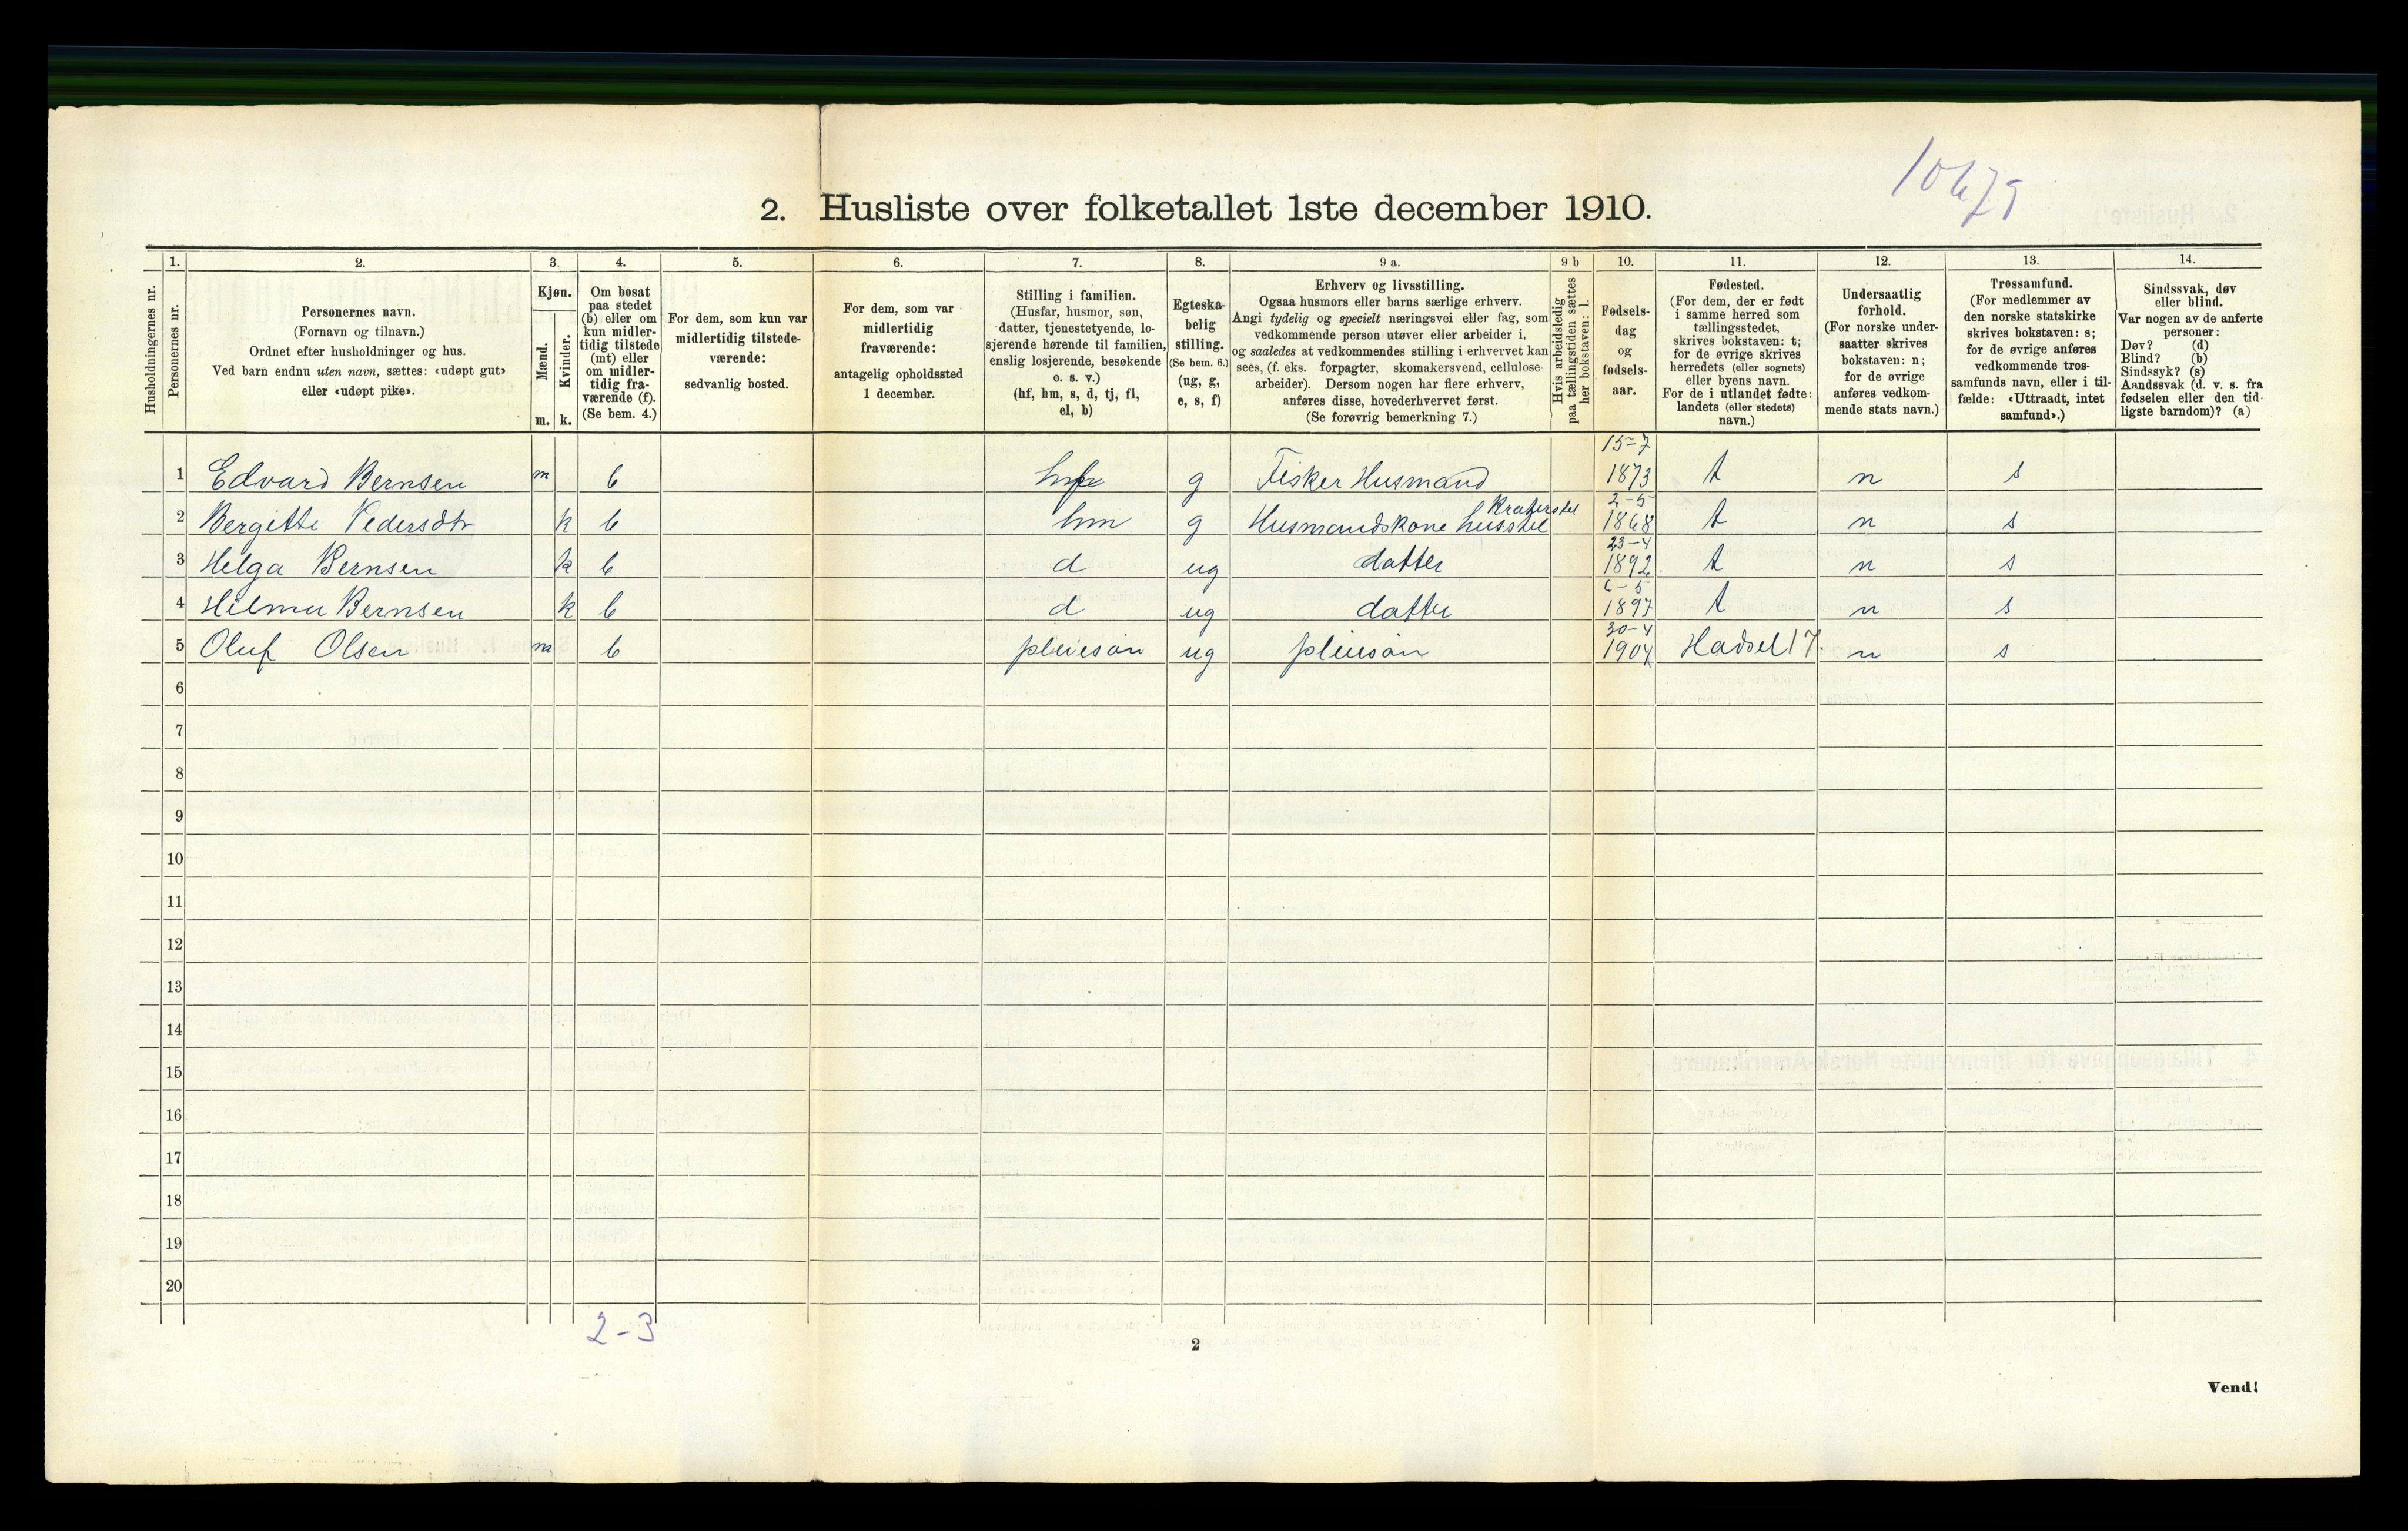 2. Husliste over folketallet 1ste december 1910.
Husholdningernes nr.
1. Personernes nr.
2. Personernes navn.
(Fornavn og tilnavn.)
Ordnet efter husholdninger og hus.
Ved barn endnu uten navn, sættes: «udøpt gut»
eller «udøpt pike».
3. Kjøn.
Mænd. m.
Kvinder. k.
4. Om bosat
paa stedet
(b) eller om
kun midler-
tidig tilstede
(mt) eller
om midler-
tidig fra-
værende (f).
(Se bem. 4.)
5. For dem, som kun var
midlertidig tilstede-
værende:
sedvanlig bosted.
6. For dem, som var
midlertidig
fraværende:
antagelig opholdssted
1 december.
7. Stilling i familien.
(Husfar, husmor, søn,
datter, tjenestetyende, lo-
sjerende hørende til familien,
enslig losjerende, besøkende
o. s. v.)
(hf, hm, s, d, tj, fl,
el, b)
8. Egteska-
belig
stilling.
(Se bem. 6.)
(ug, g,
e, s, f)
9 a. Erhverv og livsstilling.
Ogsaa husmors eller barns særlige erhverv.
Angi tydelig og specielt næringsvei eller fag, som
vedkommende person utøver eller arbeider i,
og saaledes at vedkommendes stilling i erhvervet kan
sees, (f. eks. forpagter, skomakersvend, cellulose-
arbeider). Dersom nogen har flere erhverv,
anføres disse, hovederhvervet først.
(Se forøvrig bemerkning 7.)
9 b Hvis arbeidsledig
paa tællingstiden sættes
her bokstaven: l.
10. Fødsels-
dag
og
fødsels-
aar.
11. Fødested.
(For dem, der er født
i samme herred som
tællingsstedet,
skrives bokstaven: t;
for de øvrige skrives
herredets (eller sognets)
eller byens navn.
For de i utlandet fødte:
landets (eller stedets)
navn.)
12. Undersaatlig
forhold.
(For norske under-
saatter skrives
bokstaven: n;
for de øvrige
anføres vedkom-
mende stats navn.)
13. Trossamfund.
(For medlemmer av
den norske statskirke
skrives bokstaven: s;
for de øvrige anføres
vedkommende tros-
samfunds navn, eller i til-
fælde: «Uttraadt, intet
samfund».)
14. Sindssvak, døv
eller blind.
Var nogen av de anførte
personer:
Døv? (d)
Blind? (b)
Sindssyk? (s)
Aandssvak (d. v. s. fra
fødselen eller den tid-
ligste barndom)? (a)
15-7
1 Edvard Bernsen m b g Fisker Husmand 1873 t n s
2-5
2 Bergitte Pedersdtr k b hm g Husmandskone husstel 1868 t n s
23-4
3 Helga Bernsen k b d ug datter 1892 t n s
6-5
4 Hilma Bernsen k b d ug datter 1897 t n s
30-4
5 Oluf Olsen m b pleiesøn ug pleiesøn 1904 Hadsel 17 n s
6
7
8
9
10
11
12
13
14
15
16
17
18
19
20
2-3
2
Vend!